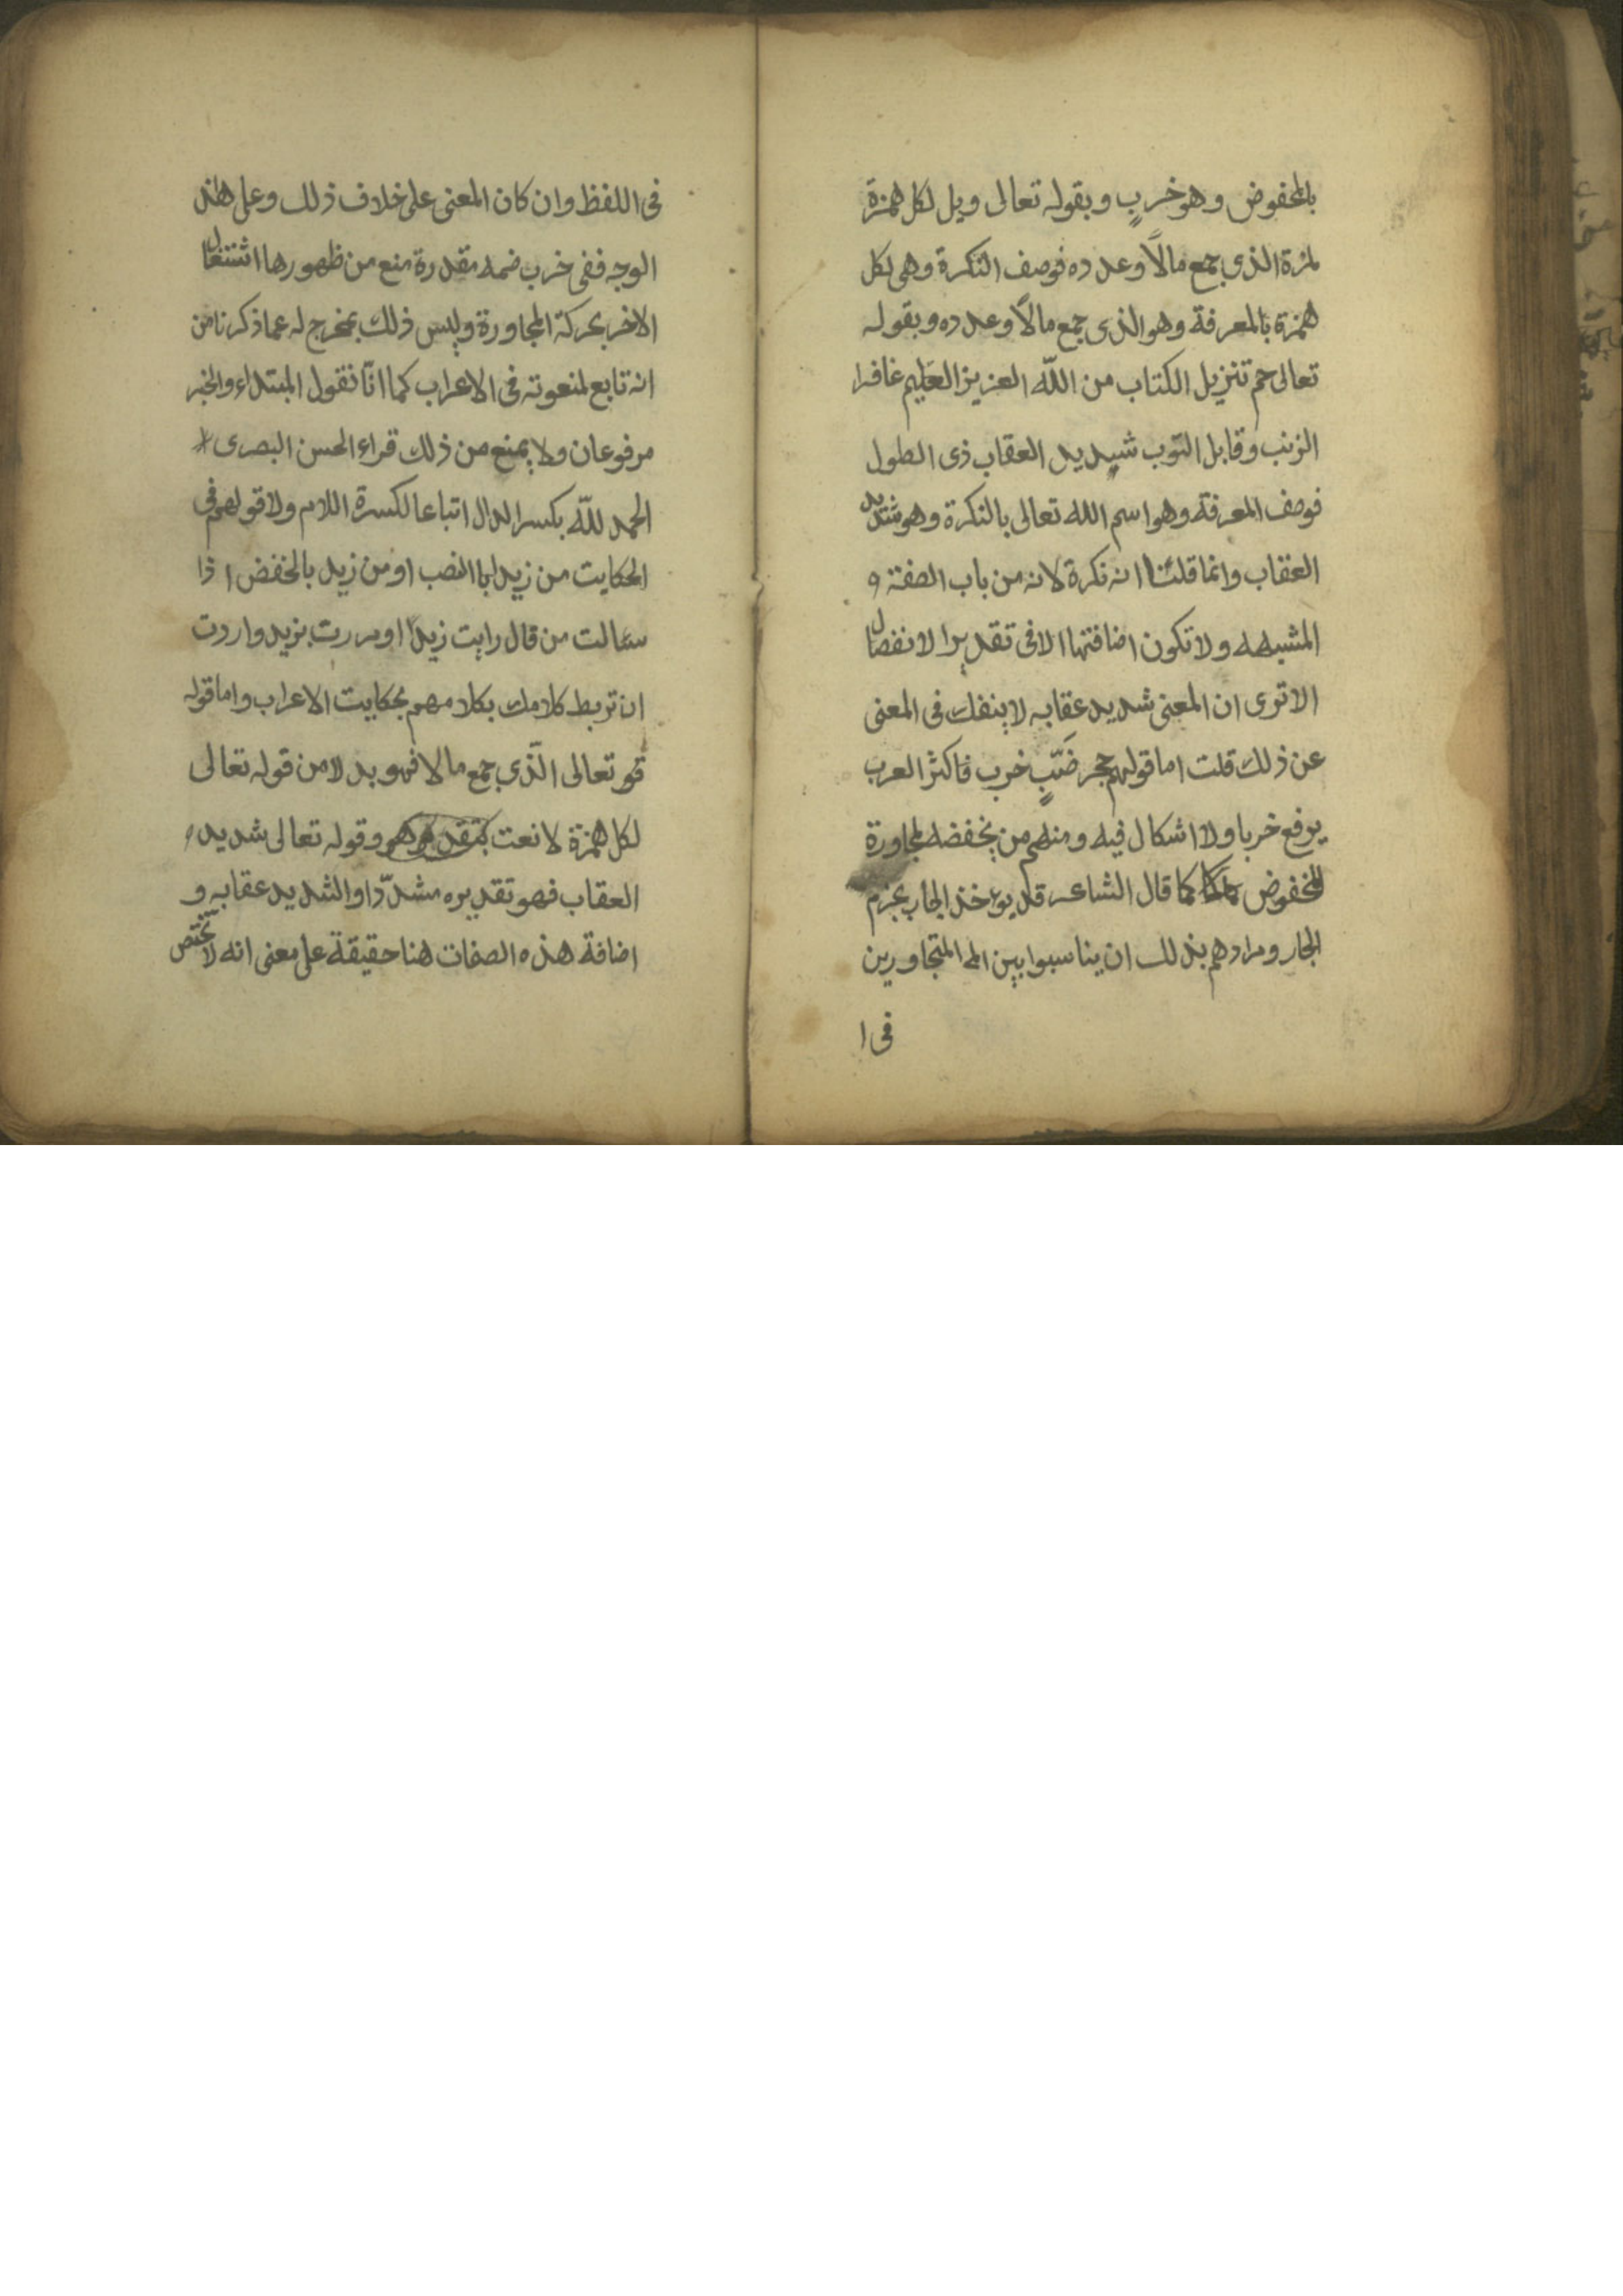 بالمخفوض وهو خربٍ وبقوله تعالى ويل لكل همزة
لمزة الذي جمع مالاً وعدده فوصف النكرة وهي لكل
همزة بالمعرفة وهو الذي جمع مالاً وعدده وبقوله
تعالى حم تنزيل الكتاب من اللّه العزيز العليم غافر ا
الزنب وقابل التوب شديد العقاب ذى الطول
فوصف المعرفة وهو اسم الله تعالى بالنكرة وهو شديد
العقاب وانما قلنا انه نكرة لانه من باب الصفة و
المشبهه ولا تكون اضافتها الا فى تقدير الانفصال
الا ترى ان المعنى شديد عقابه لا ينفك فى المعنى
عن ذلك قلت اما قولهم حجر ضَبٍّ خرب فاكثر العرب
يرفع خربا ولا اشكال فيه ومنهم من يخفضه لمجاورة
للمخفوض كما قال الشاعر قد يؤخذ الجار بجرم
الجار ومرادهم بذلك ان يناسبوا بين المتجاورين
فى ا
فى اللفظ وان كان المعنى على خلاف ذلك وعلى هذ
الوجه ففى خرب ضمه مقدرة منع من ظهورها اشتغال
الاخر بحركة المجاورة وليس ذلك بمخرج له عما ذكرنا من
انه تابع لمنعوته فى الاعراب كما انّا نقول المبتداء والخبر
مرفوعان ولا يمنع من ذلك قراء الحسن البصرى
الحمد للّه بكسر الدال اتباعا لكسرة اللام ولا قولهم فى
الحكايت من زيدا بالنصب او من زيد بالخفض ا ذا
سالت من قال رايت زيداً او مررت بزيد واردت
ان تربط كلامك بكلامهم بحكايت الاعراب واما قوله
قو تعالى الّذي جمع مالا فهو بدلا من قوله تعالى
لكل همزة لا نعت وقوله تعالى شديد
العقاب فهو تقديره مشدّدا والشديد عقابه و
اضافة هذه الصفات هنا حقيقة على معنى انه لا يختص